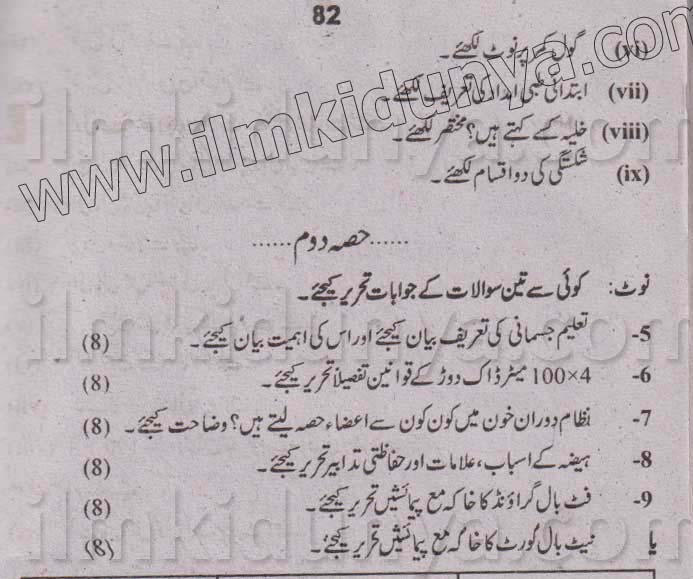 82
(vi) گول کیپر نوٹ لکھئے۔
(vii) ابتدائی طبی امداد کی تعریف لکھئے۔
(viii) خلیہ کسے کہتے ہیں؟ مختصر لکھئے۔
(ix) شکستگی کی دو اقسام لکھئے۔
www.ilmkidunya.com
......حصہ دوم......
نوٹ: کوئی سے تین سوالات کے جوابات تحریر کیجئے۔
5- تعلیم جسمانی کی تعریف بیان کیجئے اور اس کی اہمیت بیان کیجئے۔ (8)
6- 4×100 میٹر ڈاک دوڑ کے قوانین تفصیلاً تحریر کیجئے۔ (8)
7- نظام دوران خون میں کون کون سے اعضاء حصہ لیتے ہیں؟ وضاحت کیجئے۔ (8)
8- ہیضہ کے اسباب، علامات اور حفاظتی تدابیر تحریر کیجئے۔ (8)
9- فٹ بال گراؤنڈ کا خاکہ مع پیمائشیں تحریر کیجئے۔ (8)
یا نیٹ بال کورٹ کا خاکہ مع پیمائشیں تحریر کیجئے۔ (8)